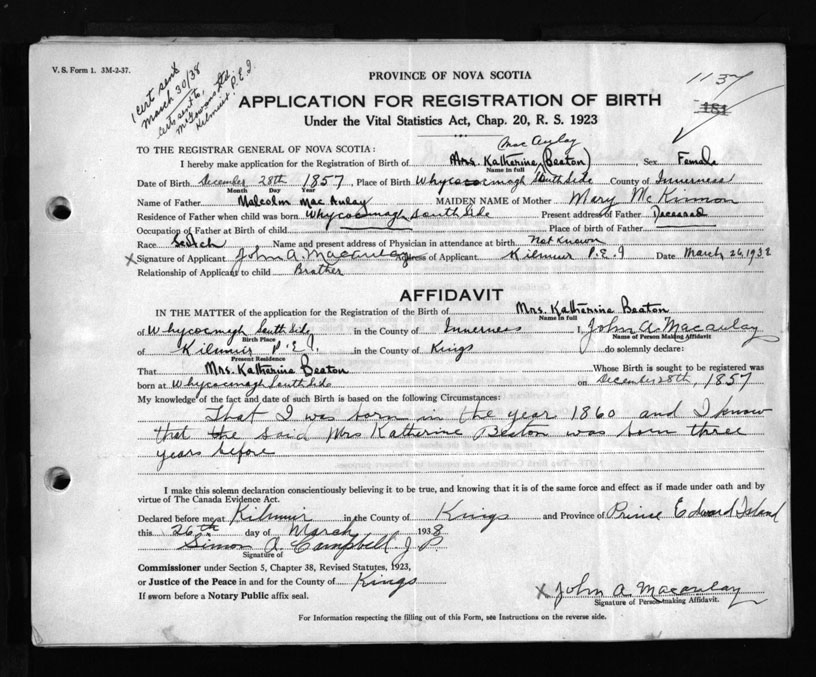 V. S. Form 1. 3M-2-37.
1 cert sent
March 30/38
Certs sent to,
Kilmuir, P.E.I.
PROVINCE OF NOVA SCOTIA
1137
151
APPLICATION FOR REGISTRATION OF BIRTH
Under the Vital Statistics Act, Chap. 20, R. S. 1923
TO THE REGISTRAR GENERAL OF NOVA SCOTIA:
Mac Aulay
I hereby make application for the Registration of Birth of Mrs. Katherine (Beaton), Sex Female
Name in full
Date of Birth December 28th 1857, Place of Birth Whycocomagh South Side County of Inverness
Month Day Year
Name of Father Malcolm Mac Aulay MAIDEN NAME of Mother Mary McKinnon
Residence of Father when child was born Whycocomagh South Side Present address of Father Deceased
Occupation of Father at Birth of child Place of birth of Father
Race Scotch Name and present address of Physician in attendance at birth Not Known
X Signature of Applicant John A. Macaulay Address of Applicant Kilmuir P.E.I Date March 26, 1938
Relationship of Applicant to child Brother
AFFIDAVIT
IN THE MATTER of the application for the Registration of the Birth of Mrs. Katherine Beaton
Name in full
of Whycocmagh South Side in the County of Inverness I, John A. Macaulay
Birth Place Name of Person Making Affidavit
of Kilmuir P.E.I. in the County of Kings do solemnly declare:
Present Residence
That Mrs. Katherine Beaton Whose Birth is sought to be registered was
born at Whycocmagh South Side on December 28th, 1857
My knowledge of the fact and date of such Birth is based on the following Circumstances:
That I was born in the year 1860 and I know
that the said Mrs Katherine Beaton was born three
years before
I make this solemn declaration conscientiously believing it to be true, and knowing that it is of the same force and effect as if made under oath and by
virtue of The Canada Evidence Act.
Declared before me at Kilmuir in the County of Kings and Province of Prince Edward Island
this 26th day of March 1938
Simon A. Campbell J.P.
Signature of
Commissioner under Section 5, Chapter 38, Revised Statutes, 1923,
or Justice of the Peace in and for the County of Kings
If sworn before a Notary Public affix seal.
X John A. Macaulay
Signature of Person making Affidavit.
For Information respecting the filling out of this Form, see Instructions on the reverse side.